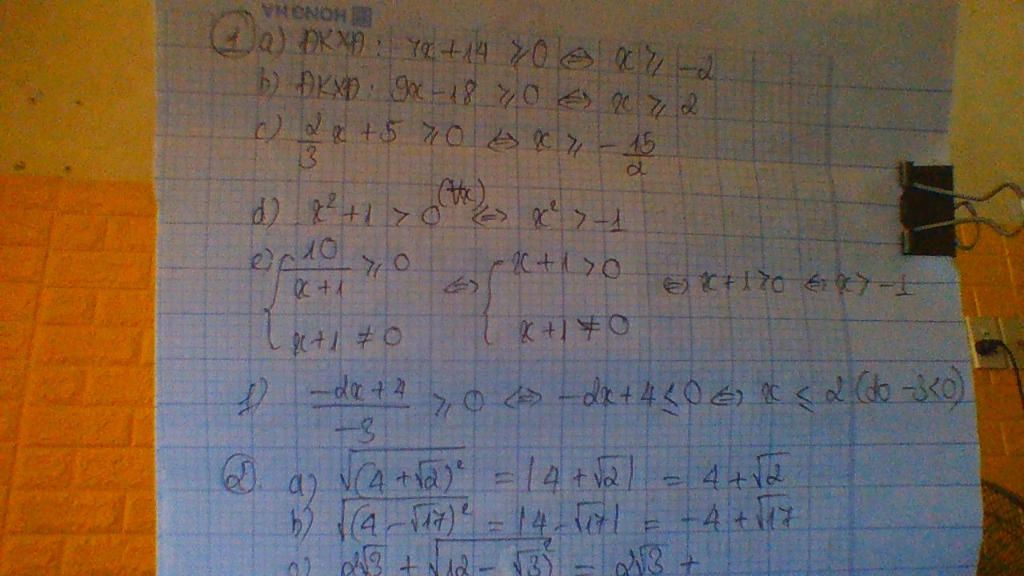 HONG HA
① a) ĐKXĐ : 7x + 14 ⩾ 0 ⇔ x ⩾ -2
b) ĐKXĐ : 9x - 18 ⩾ 0 ⇔ x ⩾ 2
c) 2/3 x + 5 ⩾ 0 ⇔ x ⩾ - 15/2
d) x² + 1 > 0 (∀x) ⇔ x² > -1
e) { 10/(x+1) ⩾ 0 ; x+1 ≠ 0 ⇔ { x+1 > 0 ; x+1 ≠ 0 ⇔ x+1 > 0 ⇔ x > -1
f) (-2x+4)/(-3) ⩾ 0 ⇔ -2x+4 ≤ 0 ⇔ x ≤ 2 (do -3<0)
② a) √(4+√2)² = |4+√2| = 4+√2
b) √(4-√17)² = |4-√17| = -4+√17
c) 2√3 + √(2-√3)² = 2√3 +